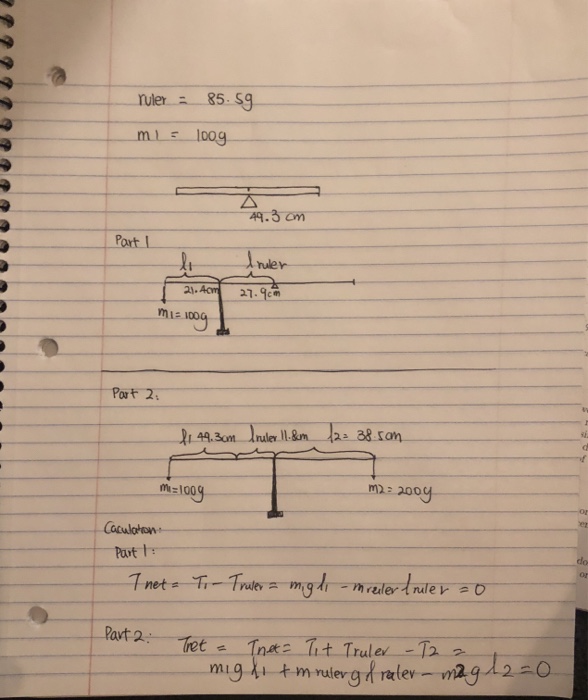 ruler = 85.5g
m1 = 100g
49.3 cm
Part 1
l1 lruler
21.4cm 27.9cm
m1=100g
Part 2:
l1 49.3cm lruler 11.8cm l2= 38.5cm
m1=100g m2=200g
Caculation:
Part 1:
Tnet = T1 - Truler = m1gl1 - mrulerlruler = 0
Part 2: Tnet = Tnet= T1 + Truler - T2 =
m1gl1 + mrulerglruler - m2gl2=0